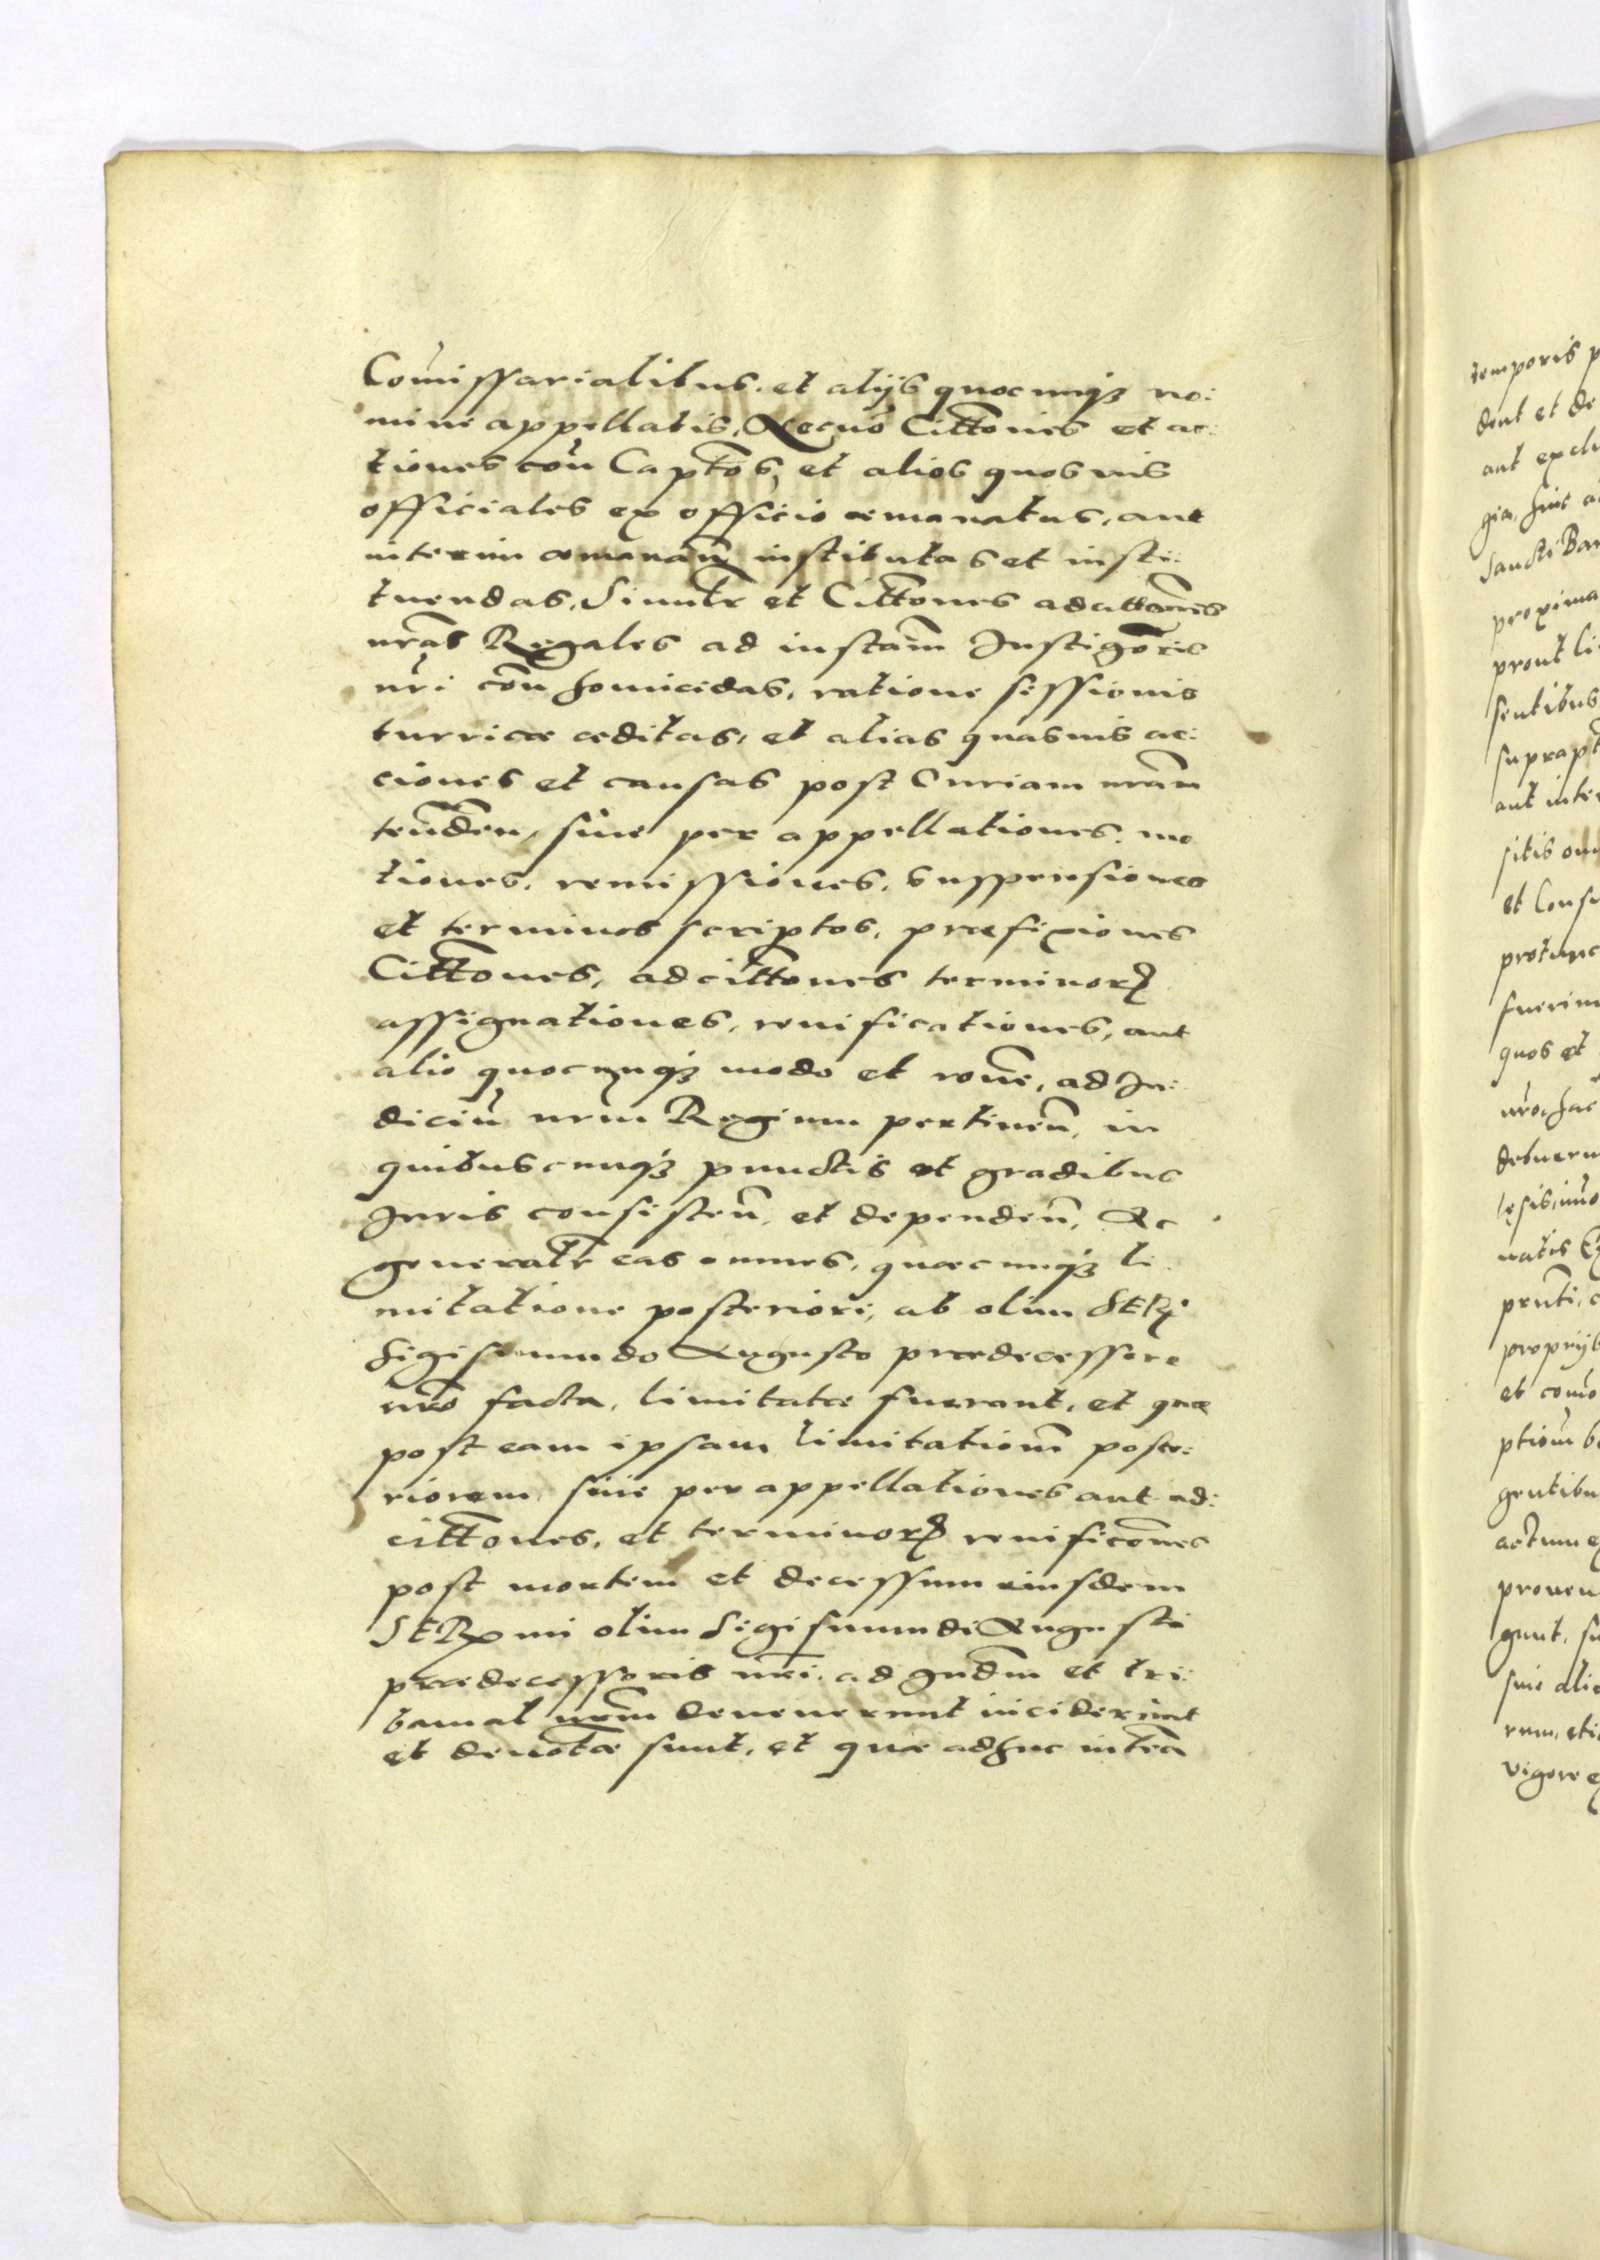 Com̃issarialibus. et alijs quocunqꝫ no:
mine appellatis, Necnõ Citt̃ones et ac:
tiones coñ Capt̃os, et alios quosuis
officiales ex officio emanatus, aut
interim emanañ institutas et insti:
tuendas, Simitr̃ et Citt̃ones ad
nr̃as Regales ad instañ Instigõris
nr̃i coñ homicidas, ratione sessionis
turricae aeditas, et alias quasuis ac:
ciones et causas post Curiam nr̃am
teñden, siue per appellationes. mo
tiones, remissiones, suspensiones
et terminos scriptos, praefixiones
Citt̃ones, adcitt̃ones terminorꝝ
assignationes, reuificationes, aut
alio quocunqꝫ modo et rone, ad Iu:
diciũ nrm Regium pertineñ, in
quibuscunqꝫ punctis et gradibus
Iuris consisteñ, et dependeñ, Ac
generatr̃ eas omnes, quaecunqꝫ li
mitatione posteriori, ab olim
Sigismundo Augusto praedecessore
nr̃o facta, limitatae fuerant, et quae
post eam ipsam limitationẽ poste:
riorem, siue per appellationes aut ad:
citt̃ones, et terminorꝝ reuificõnes
post mortem et decessum eiusdem
olim Sigismundi Augusti
praedecessoris nr̃i. ad Iudm̃ et tri:
bunal nr̃m deuenerunt inciderunt
et deuot̃ae sunt, et quae adhuc interã

temporis p
dent et de
aut exclu
gia, siue a
Sancti Bar
proxima
prout li
sentibus
suprapt
aut inter
sitis om
et Consu
protunc
fuerin
quos et
nr̃o, hac
debueru
lęsis, imo
natis
pr̃nti, c
proprijs
et com̃o
ptioñ b
gentibu
actum e
prouen
gunt, su
siue alie
rum, eti
vigore e